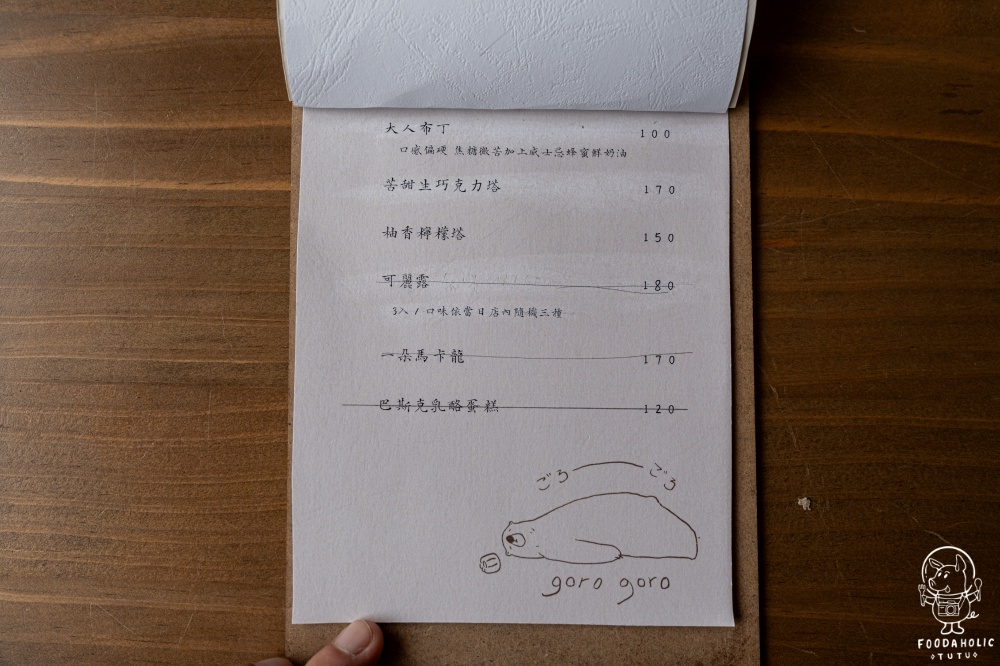 大人布丁 100
口感偏硬 焦糖微苦加上威士忌蜂蜜鮮奶油
苦甜生巧克力塔 170
柚香檸檬塔 150
可麗露 180
3入 / 口味依當日店內隨機三種
一朵馬卡龍 170
巴斯克乳酪蛋糕 120
ごろ ごろ
goro goro
FOODAHOLIC
TUTU